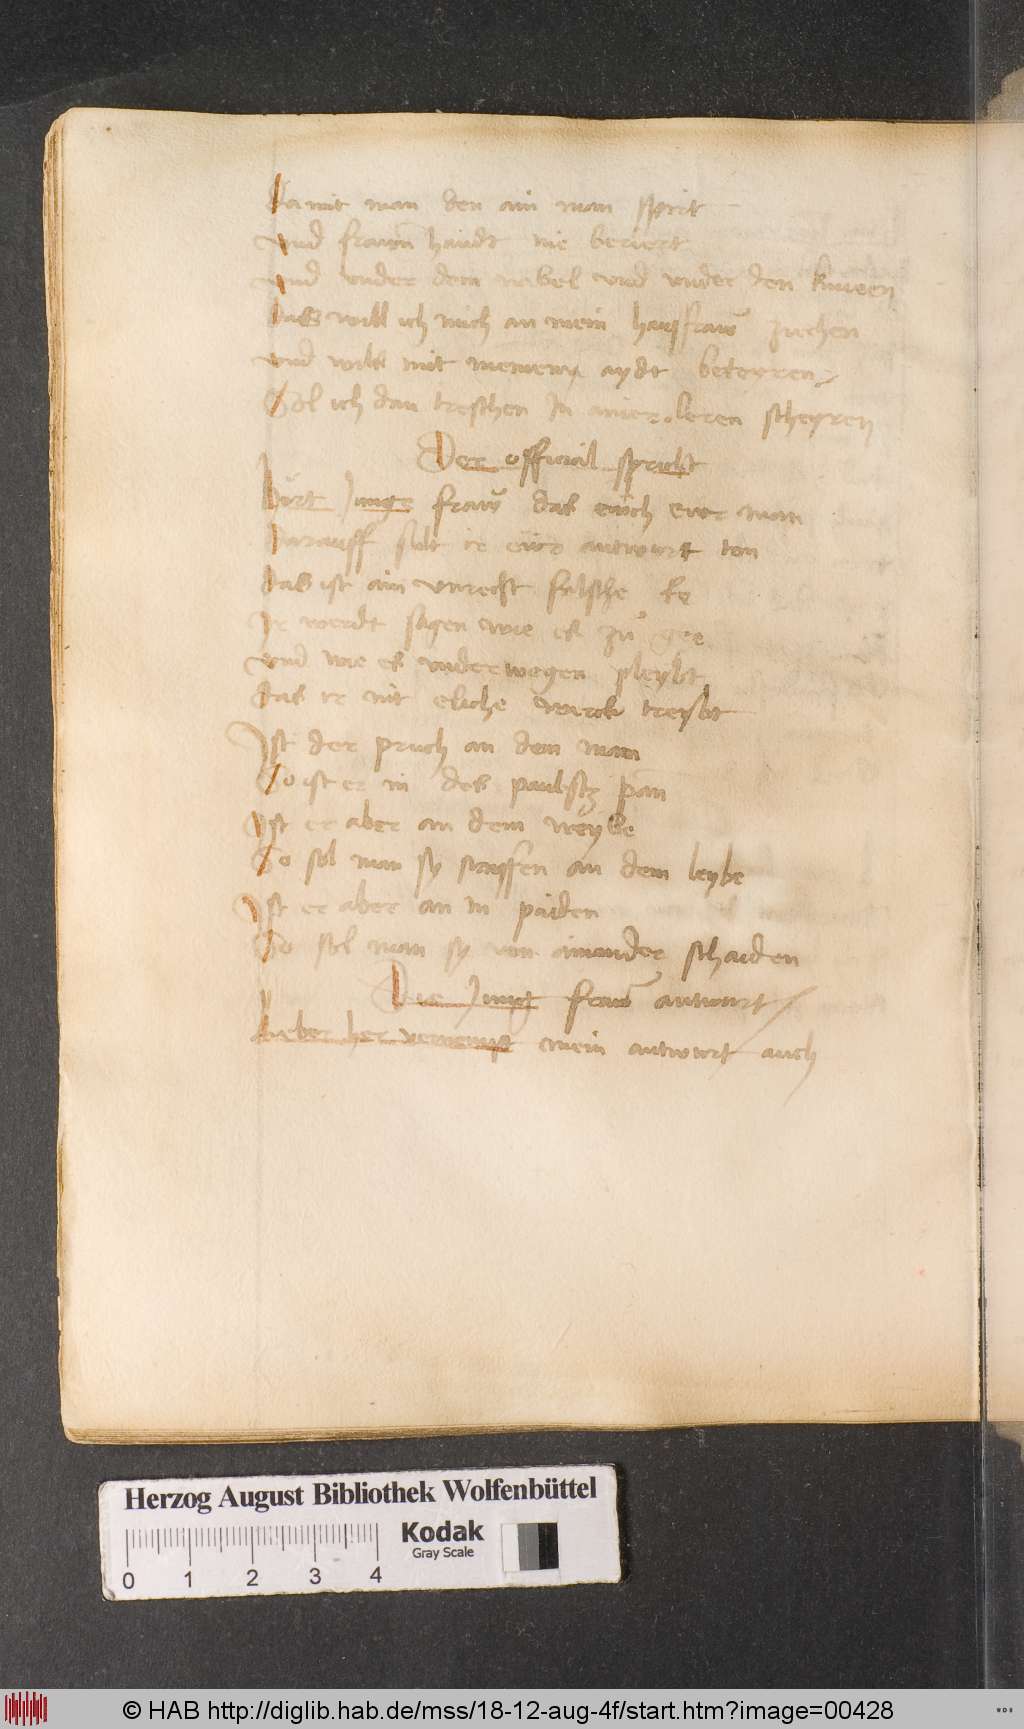 Da mit man den ain man spirt
Und frawen haudt nie beriert
Und under dem nabel und under den knieen
Das will ich mich an mein hausfraw ziechen
Und wils mit meinem aydt beteyren
Sol ich dan treschen in ainer leren scheyren
Der official spricht
Hört junge fraw das euch ewr man
Darauff solt ir eur antwurt ton
Das ist ain unrecht falsche Ee
Ir werdt sagen wie es zu gee
Und wie es underwegen pleybt
Das ir nit eliche werck treybt
Ist der pruch an dem man
So ist er in des paulstz pan
Ist er aber an dem weybe
So sol man sy straffen an dem leybe
Ist er aber an in paiden
So sol man sy von ainander schaiden
Die jungt fraw antwurt
Lieber her vernempt mein antwurt auch
Herzog August Bibliothek Wolfenbüttel
Kodak
Gray Scale
0 1 2 3 4
© HAB http://diglib.hab.de/mss/18-12-aug-4f/start.htm?image=00428